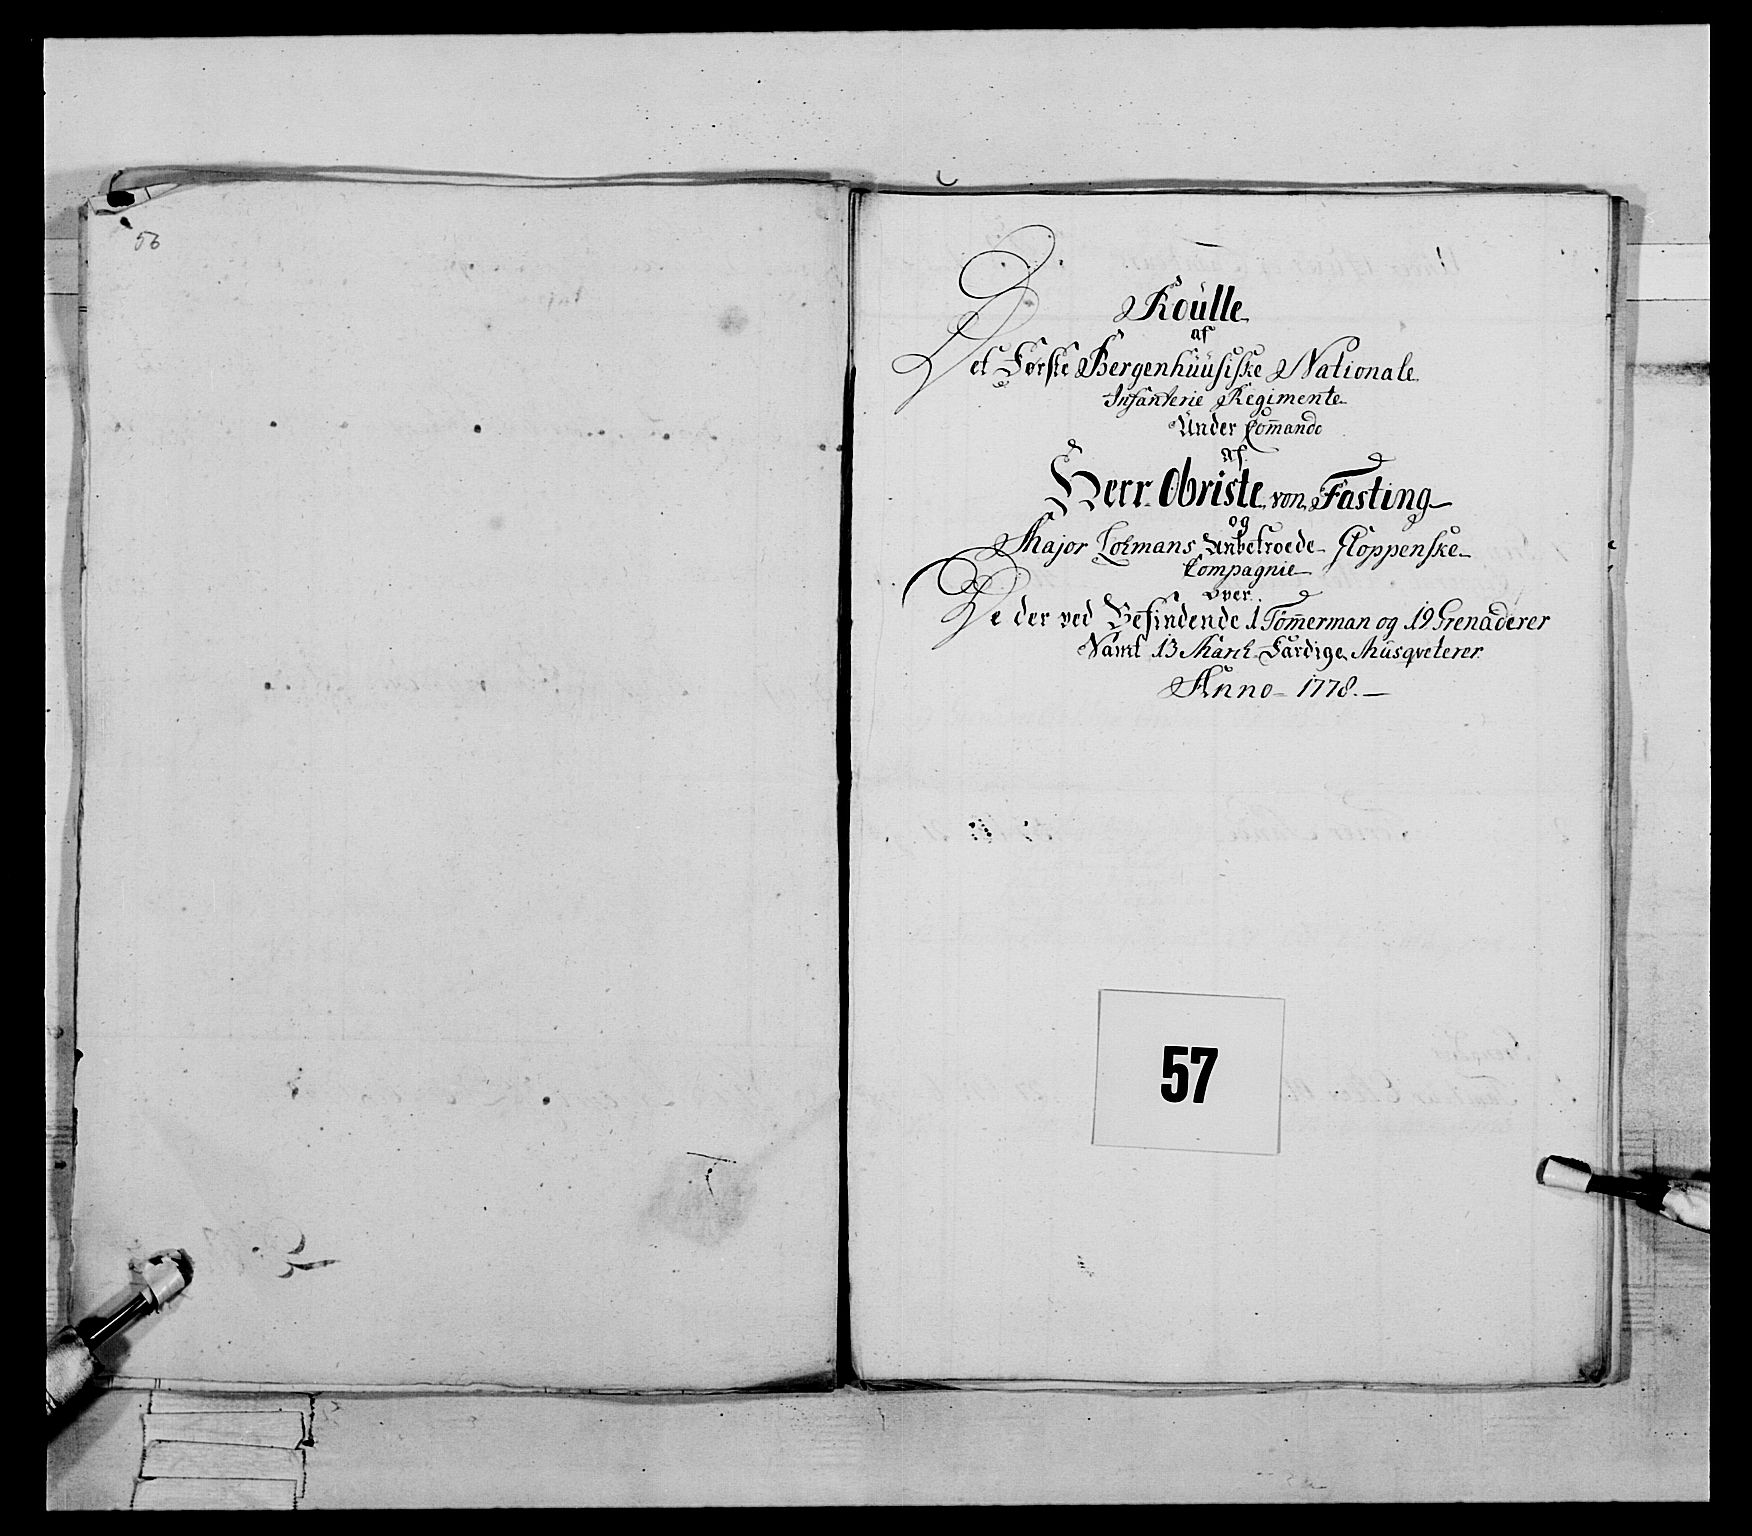 56
Roulle
af
Det Første Bergenhuusiske Nationale
Infanterie Regimente
Under Com̄ando
af
Herr Obriste von Fasting
og
Major Lohmans Anbetroede Gloppenske
Compagnie
over
De der ved Befindende 1 Tøm̄erman og 19 Grenaderer
Samt 13 March Færdige Musqveterer
Anno 1778.
57